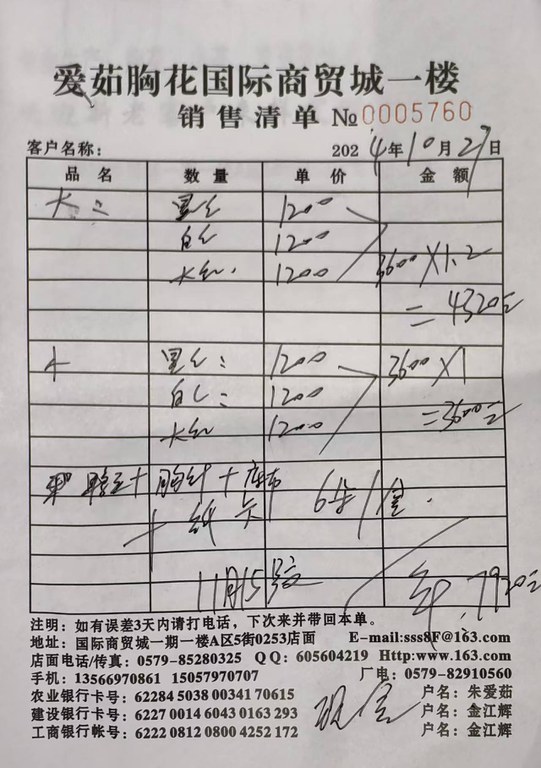 爱茹胸花国际商贸城一楼
销售清单 №0005760
客户名称： 2024年10月27日
品名 数量 单价 金额
大二 黑 1200
白 1200
大红 1200 3600×1.2
=4320元
大 黑 : 1200 3600×1
白 : 1200
大红 1200 =3600元
+胸针+
+纸卡 6 1盒.
11月15 7920元
注明：如有误差3天内请打电话，下次来并带回本单。
地址：国际商贸城一期一楼A区5街0253店面 E-mail:sss8F@163.com
店面电话/传真：0579-85280325 QQ：605604219 Http:www.163.com
手机：13566970861 15057970707 厂电：0579-82910560
农业银行卡号：62284 5038 00341 70615 户名：朱爱茹
建设银行卡号：6227 0014 6043 0163 293 现金 户名：金江辉
工商银行帐号：6222 0812 0800 4252 172 户名：金江辉